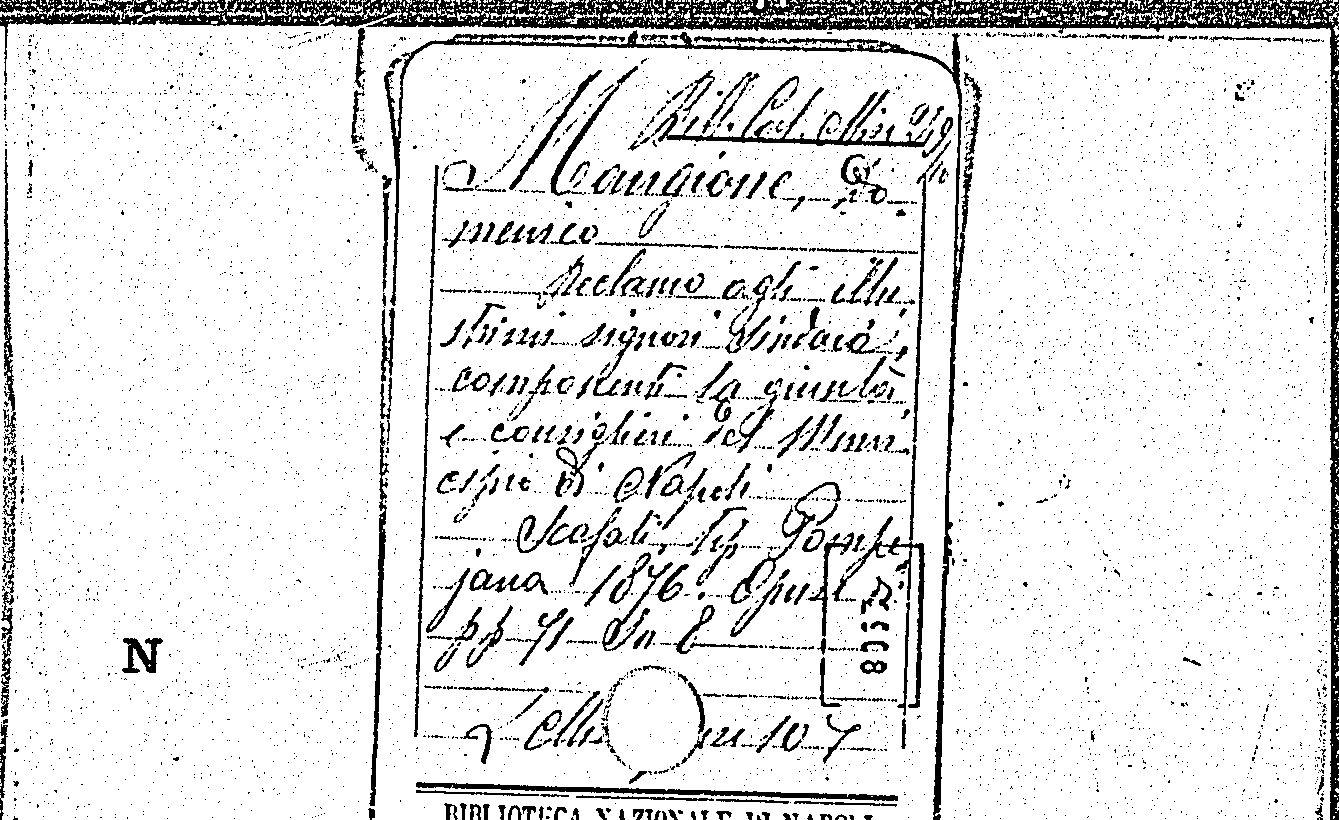 Mangione, Do
menico
Reclamo agli illu
strimi signori Sindaci,
componenti la giunta
e consiglieri del Muni
cipio di Napoli
Scafati, Tip. Pompe
jana 1876. Opusc. di
pp 71 In 8
N
BIBLIOTECA NAZIONALE DI NAPOLI